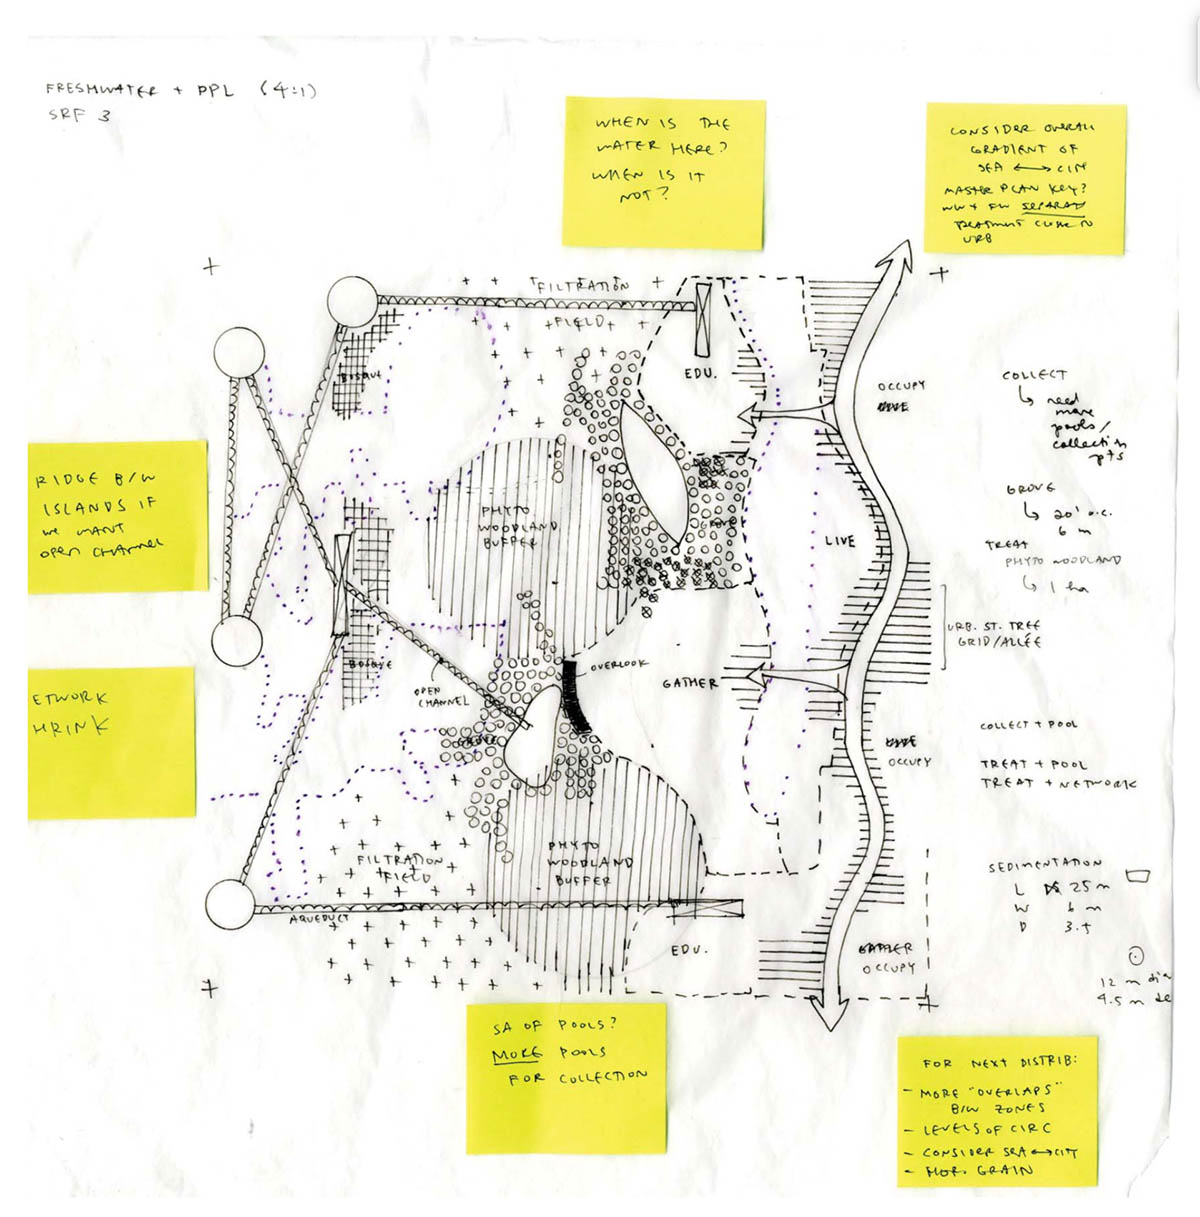 FRESHWATER + PPL (4:1)
SRF 3
WHEN IS THE
WATER HERE?
WHEN IS IT
NOT?
CONSIDER OVERALL
GRADIENT OF
SEA ⟷ CITY
MASTER PLAN KEY?
WW + FW SEPARATE
TREATMENT CLOSE TO
URB
FILTRATION
FIELD
BOSQUE
EDU.
OCCUPY
COLLECT
need
more
pools/
collection
pts
RIDGE B/W
ISLANDS IF
WE WANT
OPEN CHANNEL
PHYTO
WOODLAND
BUFFER
GROVE
LIVE
GROVE
20' o.c.
6 m
TREAT
PHYTO WOODLAND
1 ha
URB. ST. TREE
GRID/ALLÉE
BOSQUE
OVERLOOK
OPEN
CHANNEL
GATHER
ETWORK
HRINK
GROVE
OCCUPY
COLLECT + POOL
TREAT + POOL
TREAT + NETWORK
FILTRATION
FIELD
PHYTO
WOODLAND
BUFFER
SEDIMENTATION
L 25 m
W 6 m
D 3.5
AQUEDUCT
EDU.
GATHER
OCCUPY
12 m dia
4.5 m de
SA OF POOLS?
MORE POOLS
FOR COLLECTION
FOR NEXT DISTRIB:
- MORE "OVERLAPS"
B/W ZONES
- LEVELS OF CIRC
- CONSIDER SEA ⟷ CITY
- MORE GRAIN